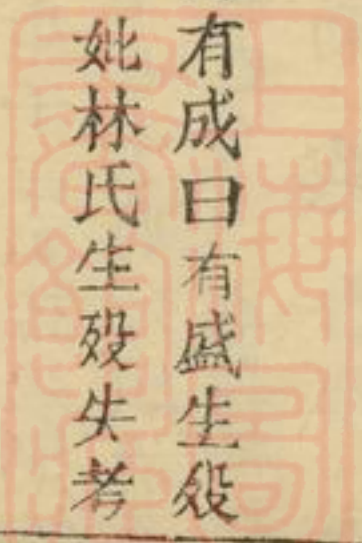 有成曰有盛生殁
妣林氏生殁失考